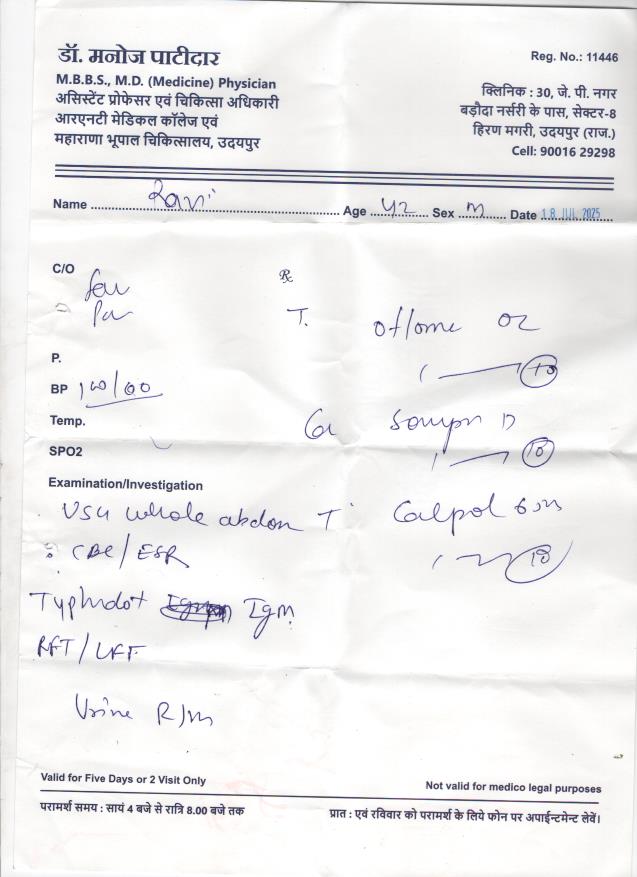 डॉ. मनोज पाटीदार
M.B.B.S., M.D. (Medicine) Physician
असिस्टेंट प्रोफेसर एवं चिकित्सा अधिकारी
आरएनटी मेडिकल कॉलेज एवं
महाराणा भूपाल चिकित्सालय, उदयपुर
Reg. No.: 11446
क्लिनिक : 30, जे. पी. नगर
बड़ौदा नर्सरी के पास, सेक्टर-8
हिरण मगरी, उदयपुर (राज.)
Cell: 90016 29298
Name Ravi Age 42 Sex M Date 18 JUL 2025
C/O
℞
T. OZ
1 10
P.
BP 100/60
Temp.
D
1 10
SPO2
Examination/Investigation
USG whole abdomen
T Calpol
10
CBC/ESR
Typhidot IgM
RFT/LFT
Urine R/M
Valid for Five Days or 2 Visit Only
Not valid for medico legal purposes
परामर्श समय : सायं 4 बजे से रात्रि 8.00 बजे तक
प्रात : एवं रविवार को परामर्श के लिये फोन पर अपाईन्टमेन्ट लेवें।